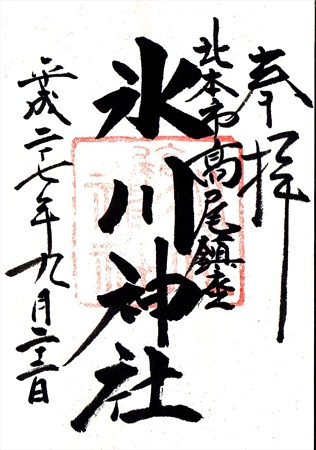 奉拝
北本市高尾鎮座
氷川神社
平成二十七年九月二十二日